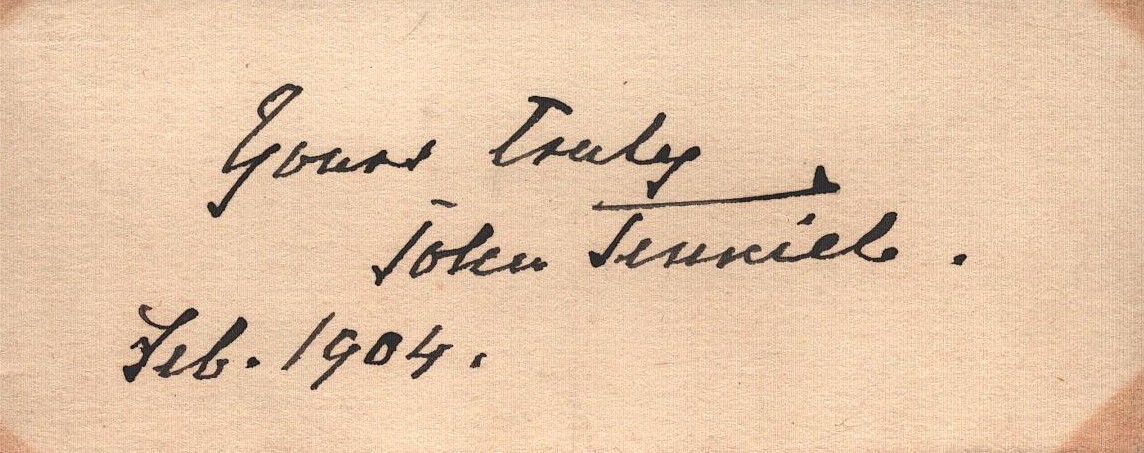 Yours Truly
John Tenniel.
Feb. 1904.